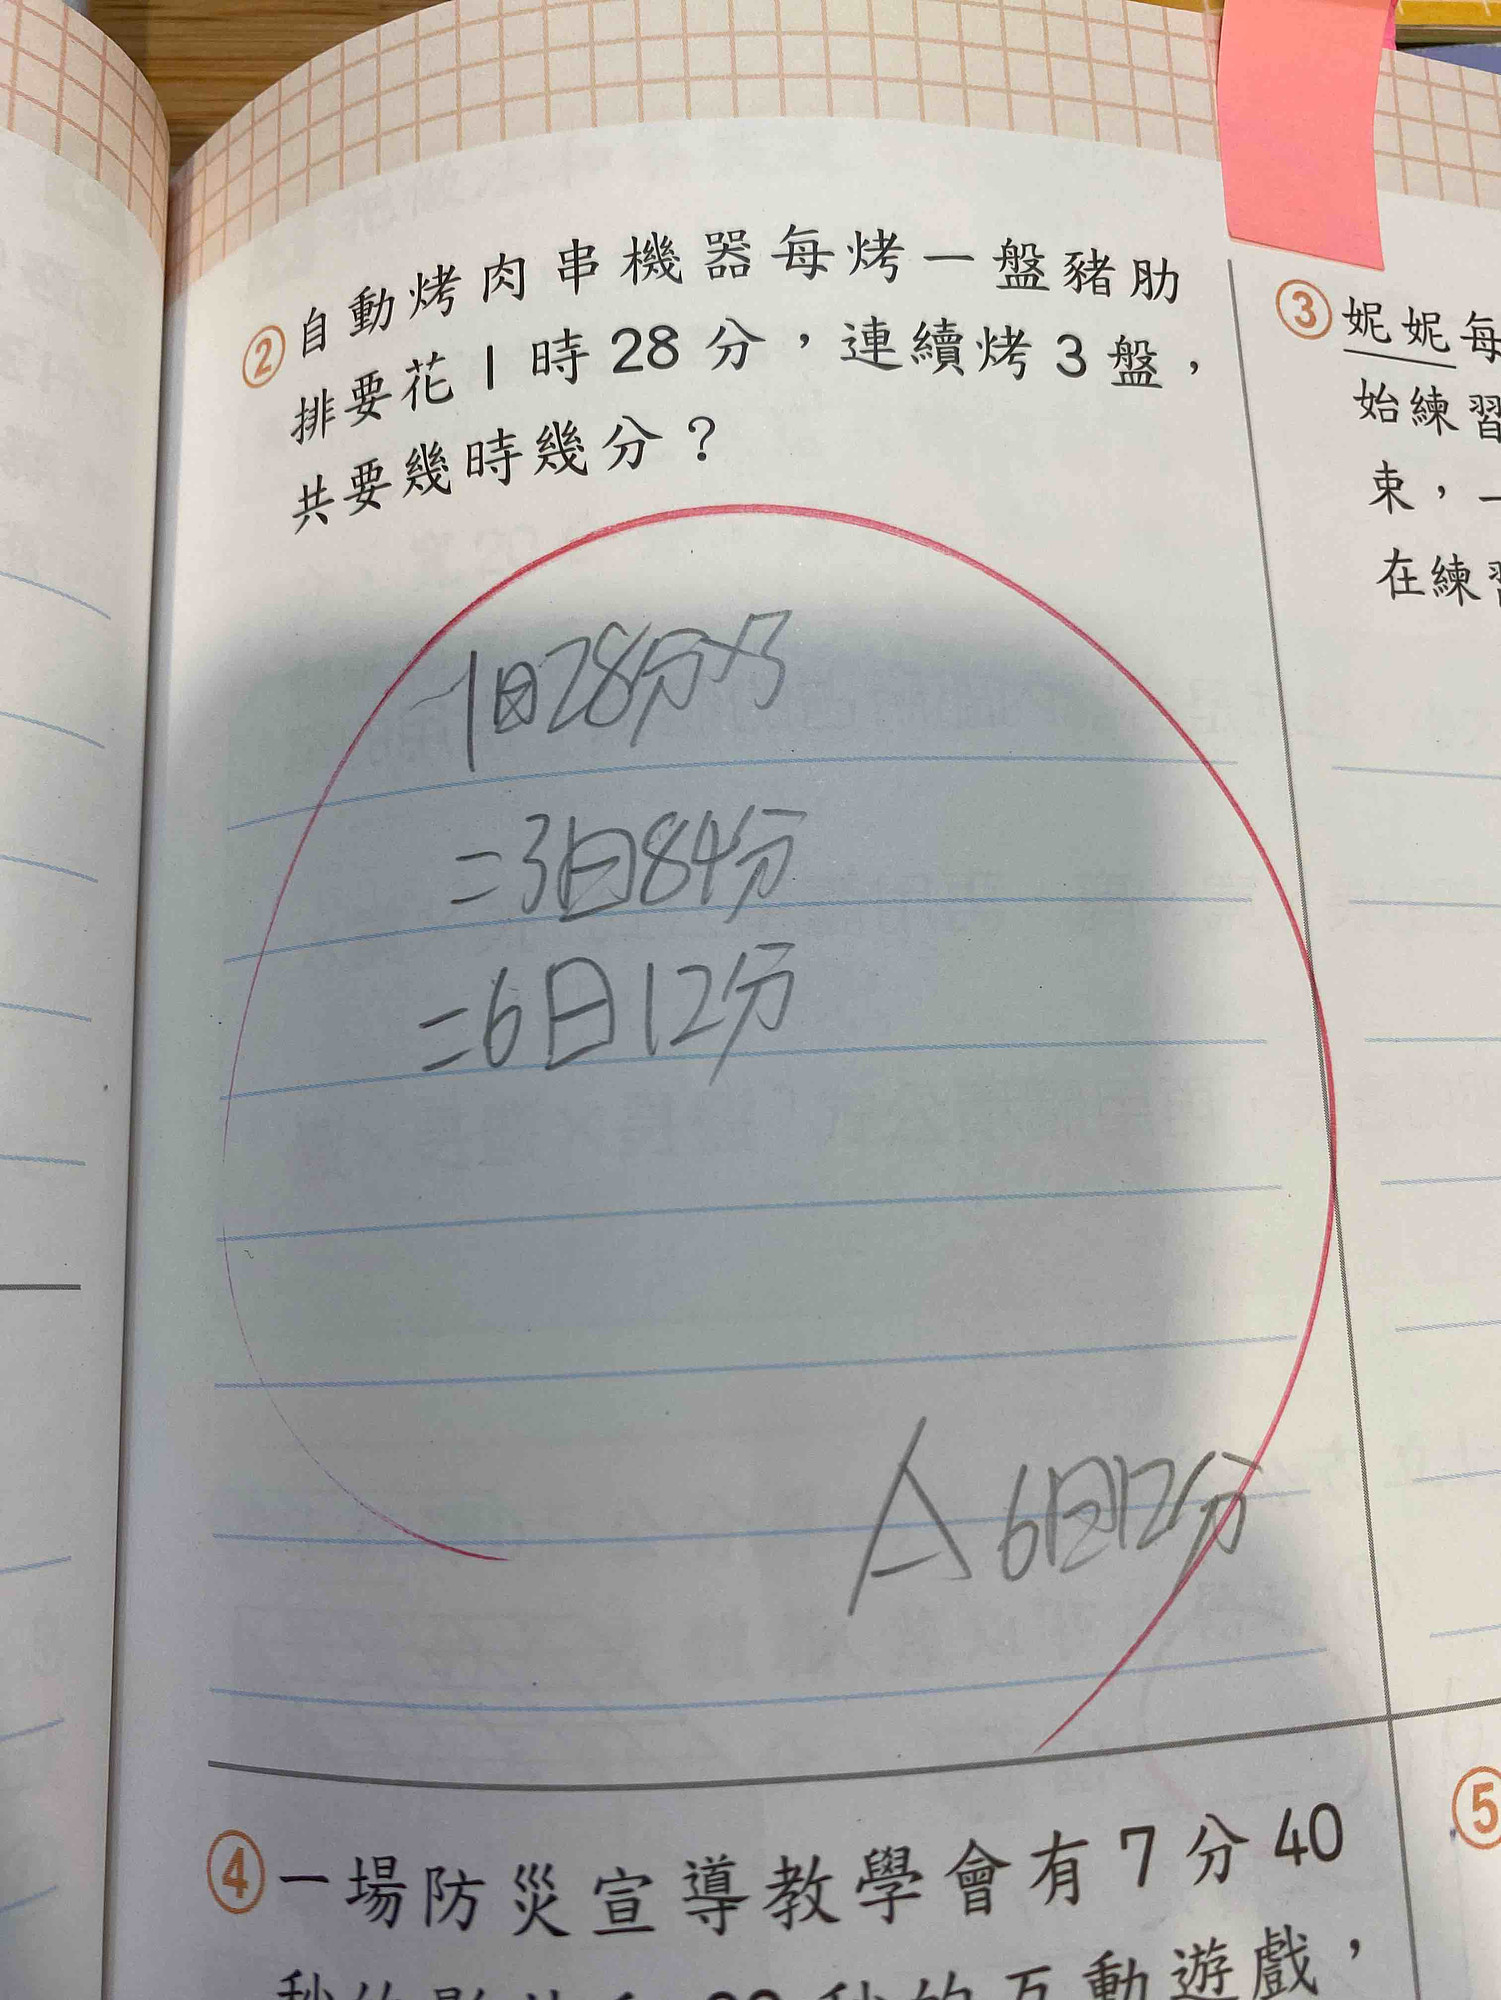 ② 自動烤肉串機器每烤一盤豬肋
排要花1時28分，連續烤3盤，
共要幾時幾分？
1日28分×3
=3日84分
=6日12分
A 6日12分
③ 妮妮每
始練習
束，一
在練習
④ 一場防災宣導教學會有7分40
動遊戲，
⑤